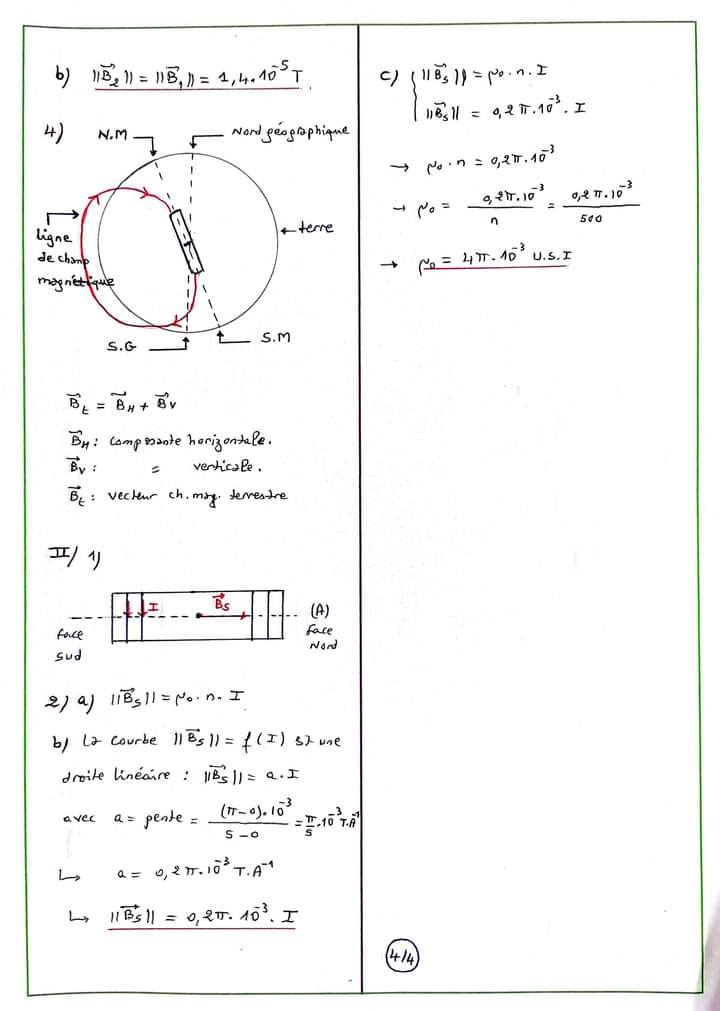 b) ||B⃗₂|| = ||B⃗₁|| = 1,4.10⁻⁵ T.
4)
N.M
Nord géographique
terre
ligne
de champ
magnétique
S.G
S.M
B⃗t = B⃗H + B⃗V
B⃗H : composante horizontale.
B⃗V : = verticale.
B⃗t : vecteur ch. mag. terrestre
II/ 1)
I
B⃗s
(A)
face
sud
face
Nord
2) a) ||B⃗s|| = μ₀. n. I
b) La courbe ||B⃗s|| = f(I) st une
droite linéaire : ||B⃗s|| = a. I
avec a = pente = (π-0).10⁻³ / 5-0 = π/5 .10⁻³ T.A⁻¹
↳ a = 0,2π.10⁻³ T.A⁻¹
↳ ||B⃗s|| = 0,2π. 10⁻³. I
c) { ||B⃗s|| = μ₀. n. I
||B⃗s|| = 0,2π.10⁻³. I
→ μ₀. n = 0,2π.10⁻³
→ μ₀ = 0,2π.10⁻³ / n = 0,2π.10⁻³ / 500
→ μ₀ = 4π.10⁻³ U.S.I
4/4